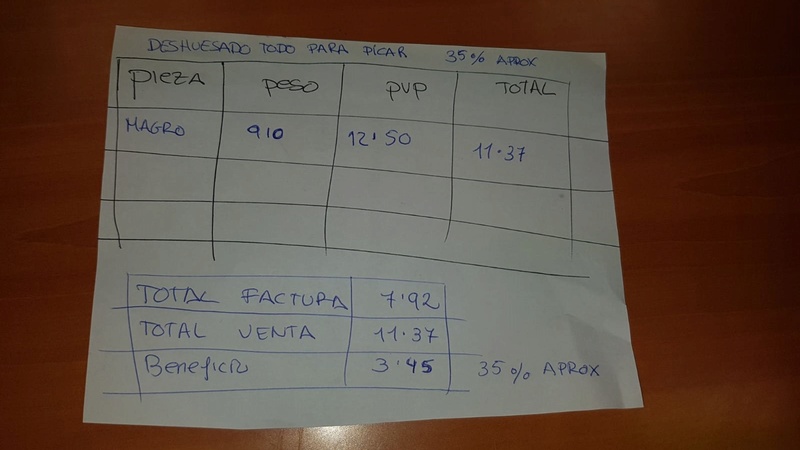 DESHUESADO TODO PARA PICAR 35% APROX
PIEZA PESO PVP TOTAL
MAGRO 910 12'50 11.37
TOTAL FACTURA 7'92
TOTAL VENTA 11.37
Beneficio 3'45 35% APROX